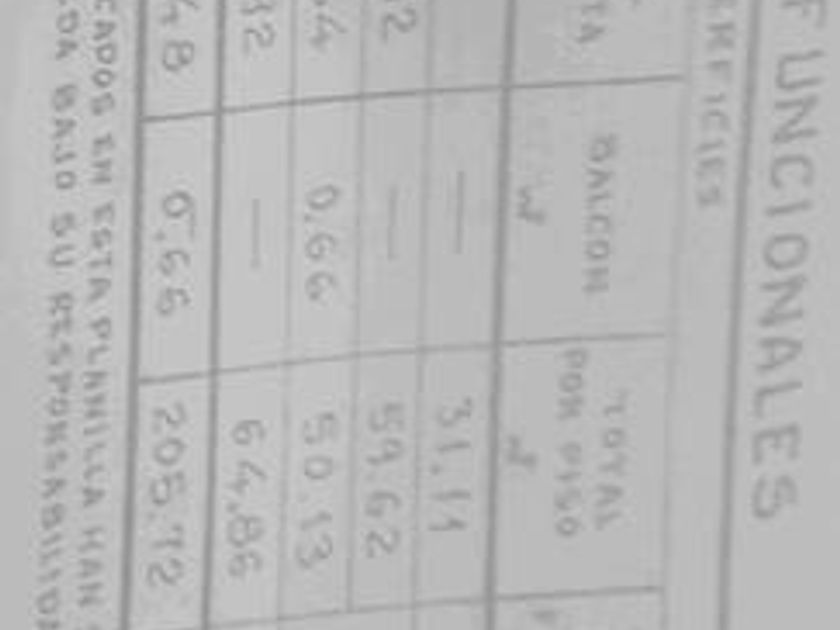 FUNCIONALES
RFICIES
TA BALCON TOTAL
m² POR PISO
m²
— 31.11
2 — 59.62
.4 0.66 50.13
32 — 64.86
48 0.66 205.72
CADOS EN ESTA PLANILLA HAN
DA BAJO SU RESPONSABILIDA